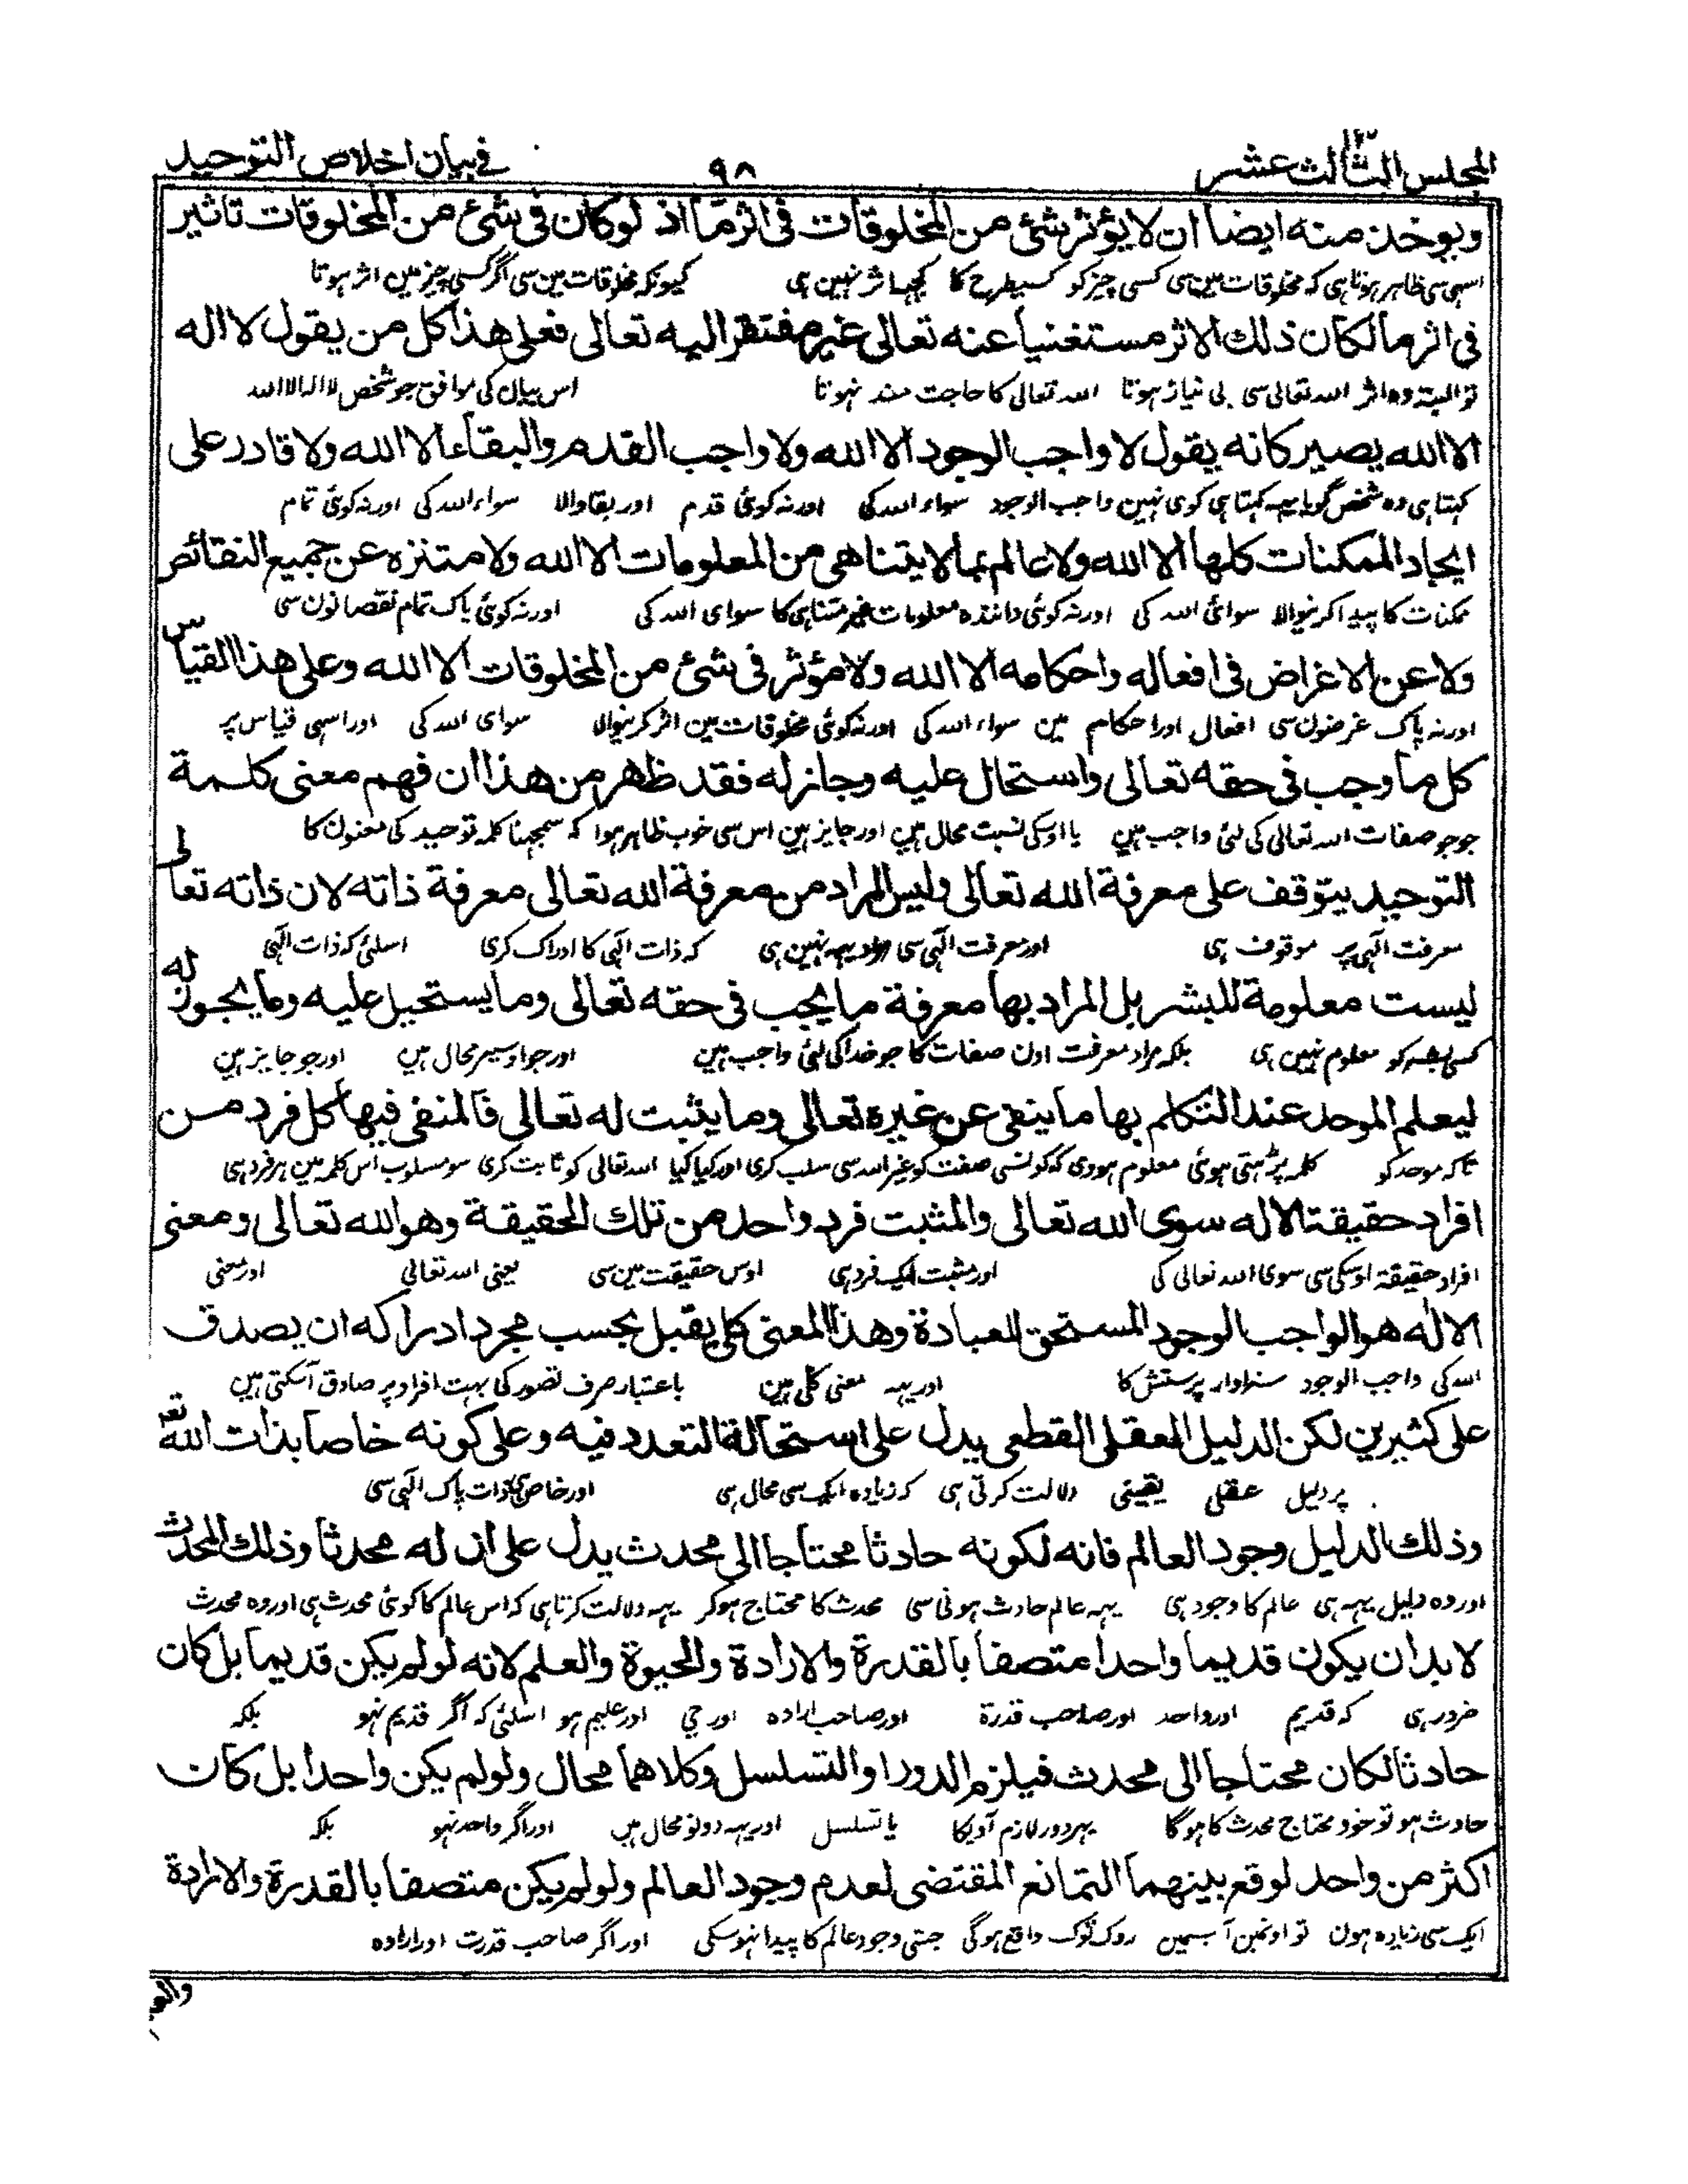 المجلس الثالث عشر
٩٨
في بيان اخلاص التوحيد
ويوخذ منه ايضا ان لا يؤثر شئ من المخلوقات فى اثر ما اذ لوكان فى شئ من المخلوقات تاثير
اسہی سی ظاہر ہوتا ہی کہ مخلوقات مین سی کسی چیز کو کسیطرح کا کچہہ اثر نہین ہی کیونکہ مخلوقات مین سی اگر کسی چیز مین اثر ہوتا
فى اثر ما لكان ذلك الاثر مستغنيا عنه تعالى غير مفتقر اليه تعالى فعلى هذا كل من يقول لا اله
تو البتہ وہ اثر اللہ تعالی سی بی نیاز ہوتا اللہ تعالی کا حاجت مند نہوتا اس بیان کی موافق جو شخص لا الہ الا اللہ
الا الله يصير كانه يقول لا واجب الوجود الا الله ولا واجب القدم والبقاء الا الله ولا قادر على
کہتا ہی وہ شخص گویا یہہ کہتا ہی کوی نہین واجب الوجود سواء اللہ کی اور نہ کوئی قدم اور بقا والا سواء اللہ کی اور نہ کوئی تمام
ايجاد الممكنات كلها الا الله ولا عالم بما لا يتناهى من المعلومات الا الله ولا متنزه عن جميع النقائص
ممکنات کا پیدا کرنیوالا سوائی اللہ کی اور نہ کوئی دانندہ معلومات غیر متناہی کا سوای اللہ کی اور نہ کوئی پاک تمام نقصانون سی
ولا عن الاغراض فى افعاله واحكامه الا الله ولا مؤثر فى شئ من المخلوقات الا الله وعلى هذا القياس
اور نہ پاک غرضون سی افعال اور احکام مین سواء اللہ کی اور نہ کوئی مخلوقات مین اثر کرنیوالا سوای اللہ کی اور اسہی قیاس پر
كل ما وجب فى حقه تعالى واستحال عليه وجاز له فقد ظهر من هذا ان فهم معنى كلمة
جو جو صفات اللہ تعالی کی لئی واجب ہین یا اوسکی نسبت محال ہین اور جایز ہین اس سی خوب ظاہر ہوا کہ سمجہنا کلمہ توحید کی معنون کا
التوحيد يتوقف على معرفة الله تعالى وليس المراد من معرفة الله تعالى معرفة ذاته لان ذاته تعالى
معرفت الہی پر موقوف ہی اور معرفت الہی سی مراد یہہ نہین ہی کہ ذات الہی کا ادراک کری اسلئی کہ ذات الہی
ليست معلومة للبشر بل المراد بها معرفة ما يجب فى حقه تعالى وما يستحيل عليه وما يجوز له
کسی بشر کو معلوم نہین ہی بلکہ مراد معرفت اون صفات کا جو خدا کی لئی واجب ہین اور جو اوسپر محال ہین اور جو جایز ہین
ليعلم الموحد عند التكلم بها ما ينفى عن غيره تعالى وما يثبت له تعالى فالمنفى فيها كل فرد من
تا کہ موحد کو کلمہ پڑہتی ہوئی معلوم ہووی کہ کونسی صفت کو غیر اللہ سی سلب کری اور کیا کیا اللہ تعالی کو ثابت کری سو مسلوب اس کلمہ مین ہر فرد ہی
افراد حقيقة الاله سوى الله تعالى والمثبت فرد واحد من تلك الحقيقة وهو الله تعالى ومعنى
افراد حقیقۃ اوسکی سی سوی اللہ تعالی کی اور مثبت ایک فرد ہی اوس حقیقت مین سی یعنی اللہ تعالی اور معنی
الاله هو الواجب الوجود المستحق للعبادة وهذا المعنى كلى يقبل بحسب مجرد ادراكه ان يصدق
اللہ کی واجب الوجود سزاوار پرستش کا اور یہہ معنی کلی ہین باعتبار صرف تصور کی بہت افراد پر صادق آسکتی ہین
على كثيرين لكن الدليل العقلى القطعى يدل على استحالة التعدد فيه وعلى كونه خاصا بذات الله تعـ
پر دلیل عقلی یقینی دلالت کرتی ہی کہ زیادہ ایک سی محال ہی اور خاص ہی ذات پاک الہی سی
وذلك الدليل وجود العالم فانه لكونه حادثا محتاجا الى محدث يدل على ان له محدثا وذلك المحدث
اور وہ دلیل یہہ ہی عالم کا وجود ہی یہہ عالم حادث ہونی سی محدث کا محتاج ہو کر یہہ دلالت کرتا ہی کہ اس عالم کا کوئی محدث ہی اور وہ محدث
لا بد ان يكون قديما واحدا متصفا بالقدرة والارادة والحيوة والعلم لانه لو لم يكن قديما بل كان
ضرور ہی کہ قدیم اور واحد اور صاحب قدرۃ اور صاحب ارادہ اور حی اور علیم ہو اسلئی کہ اگر قدیم نہو بلکہ
حادثا لكان محتاجا الى محدث فيلزم الدور او التسلسل وكلاهما محال ولو لم يكن واحدا بل كان
حادث ہو تو خود محتاج محدث کا ہوگا پہر دور لازم آویگا یا تسلسل اور یہہ دونو محال ہین اور اگر واحد نہو بلکہ
اكثر من واحد لوقع بينهما التمانع المقتضى لعدم وجود العالم ولو لم يكن متصفا بالقدرة والارادة
ایک سی زیادہ ہون تو اونمین آپسمین روک ٹوک واقع ہوگی جتی وجود عالم کا پیدا نہوسکی اور اگر صاحب قدرت اور ارادہ